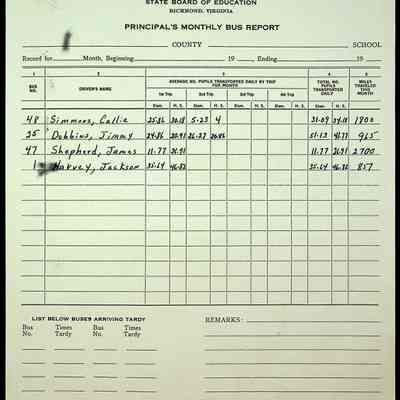 STATE BOARD OF EDUCATION
RICHMOND, VIRGINIA
PRINCIPAL'S MONTHLY BUS REPORT
COUNTY SCHOOL
Record for Month, Beginning 19 , Ending 19
1 2 3 4 5
BUS NO. DRIVER'S NAME AVERAGE NO. PUPILS TRANSPORTED DAILY BY TRIP FOR MONTH TOTAL NO. PUPILS TRANSPORTED DAILY MILES TRAVELED THIS MONTH
1st Trip 2nd Trip 3rd Trip 4th Trip
Elem. H. S. Elem. H. S. Elem. H. S. Elem. H. S. Elem. H. S.
48 Simmons, Callie 25.86 30.18 5.23 4 31.09 34.18 1800
25 Dobbins, Jimmy 24.86 20.91 26.27 51.13 965
47 Shepherd, James 11.77 36.91 11.77 36.91 2700
1 Harvey, Jackson 35.64 46.82 35.64 857
LIST BELOW BUSES ARRIVING TARDY REMARKS:
Bus No. Times Tardy Bus No. Times Tardy